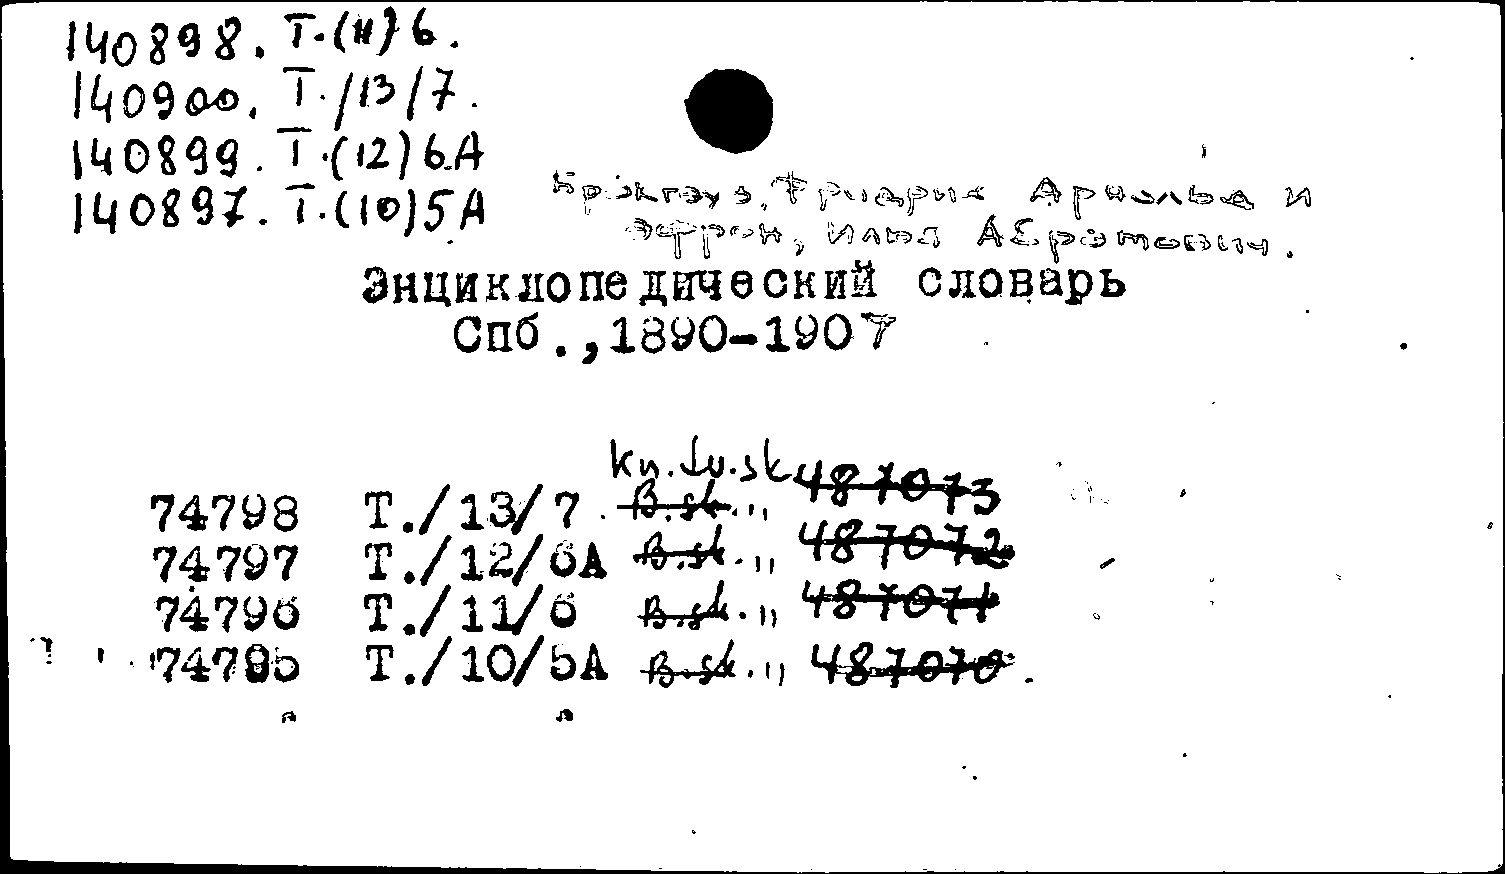 140898. T.(11)6.
140900. T./13/7.
140899. T.(12)6A
140897. T.(10)5A
Брокгауз, Фридрих Арнольд и
Эфрон, Илья Абрамович.
Энциклопедический словарь
Спб.,1890-1907
kn.
74798 Т./13/7 B.sk. " 487073
74797 Т./12/6А B.sk. " 487072
74796 Т./11/6 B.sk. " 487071
74795 Т./10/5А B.sk. " 487070.